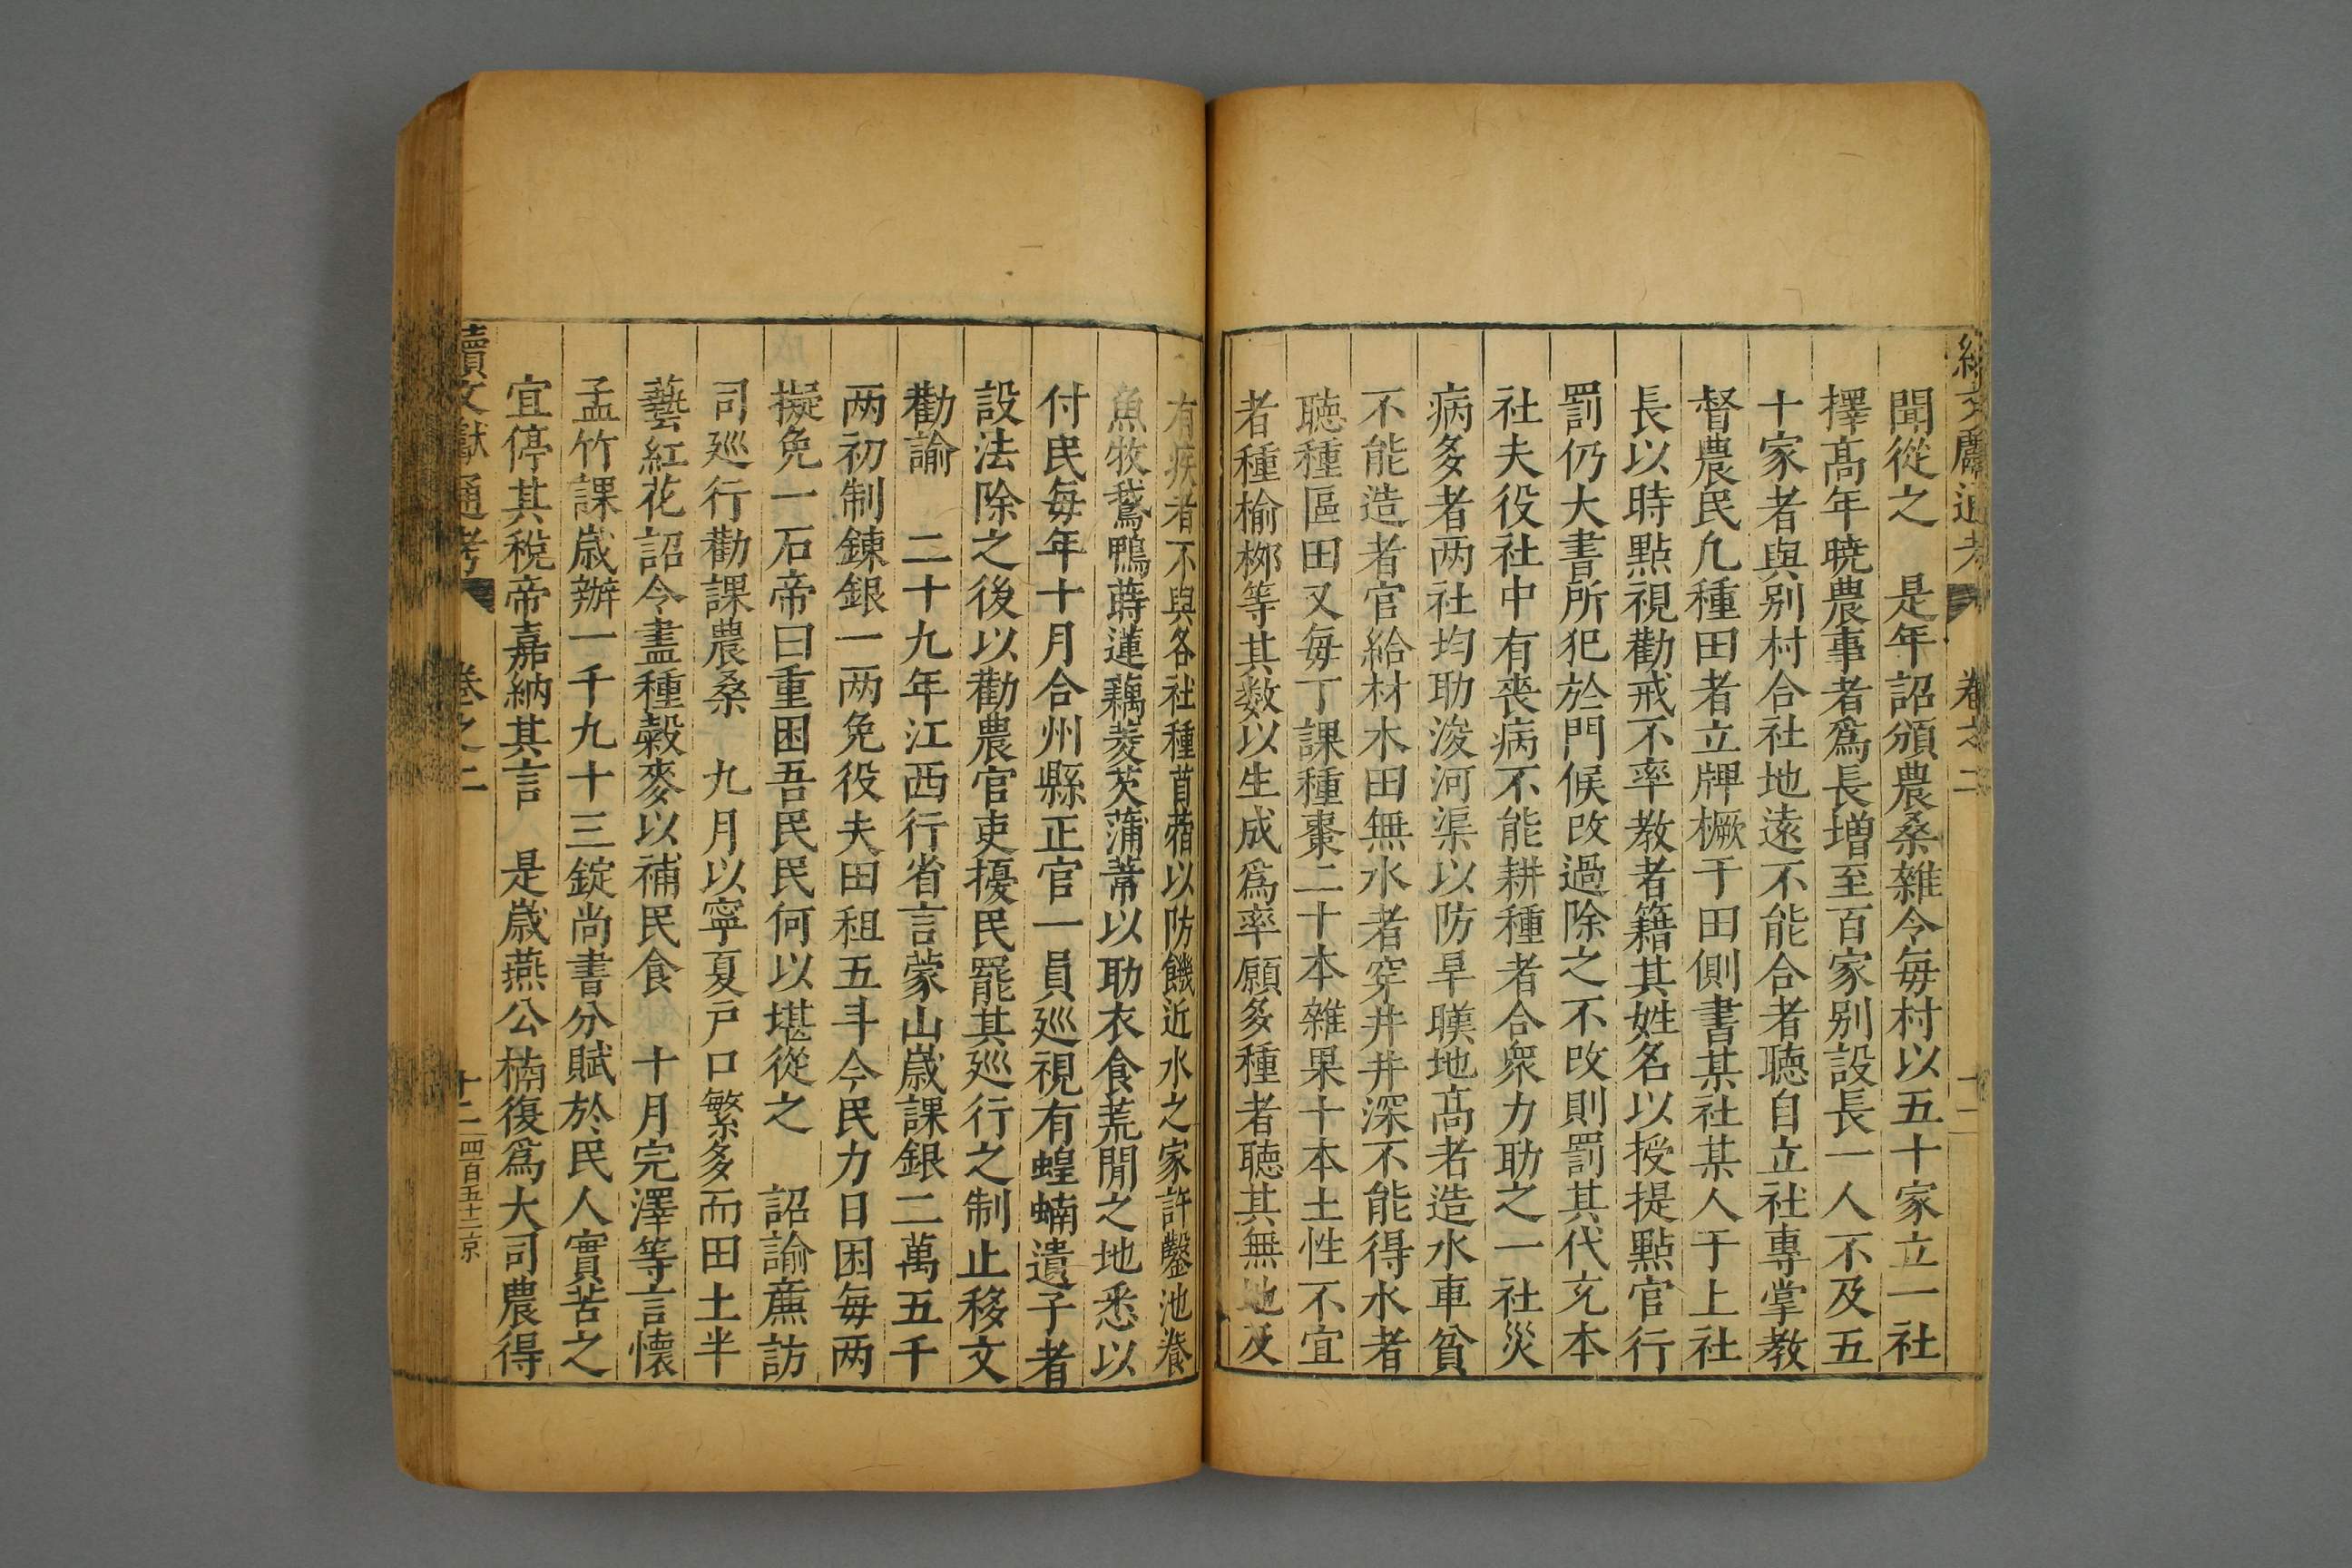 續文獻通考 卷之二 十二
聞從之 是年詔頒農桑雜令每村以五十家立一社
擇髙年暁農事者爲長增至百家别設長一人不及五
十家者與别村合社地逺不能合者聽自立社專掌教
督農民凢種田者立牌橛于田側書某社某人于上社
長以時點視勸戒不率教者籍其姓名以授提點官行
罰仍大書所犯於門候改過除之不改則罰其代充本
社夫役社中有丧病不能耕種者合衆力助之一社災
病多者两社均助浚河渠以防旱暵地髙者造水車貧
不能造者官給材木田無水者穿井井深不能得水者
聽種區田又每丁課種棗二十本雜果十本土性不宜
者種榆栁等其数以生成爲率願多種者聽其無地及
有疾者不與各社種苜蓿以防饑近水之家許鑿池養
魚牧鵞鴨蒔蓮藕菱芡蒲葦以助衣食荒閒之地悉以
付民每年十月合州縣正官一員廵視有蝗蝻遺子者
設法除之後以勸農官吏擾民罷其廵行之制止移文
勸諭 二十九年江西行省言蒙山歲課銀二萬五千
两初制鍊銀一两免役夫田租五斗今民力日困每两
擬免一石帝曰重困吾民民何以堪從之 詔諭亷訪
司廵行勸課農桑 九月以寧夏戸口繁多而田土半
藝紅花詔令盡種穀麥以補民食 十月完澤等言懷
孟竹課歲辦一千九十三錠尚書分賦於民人實苦之
宜停其稅帝嘉納其言 是歲燕公楠復爲大司農得
續文獻通考 卷之二 十二 四百五十二 京